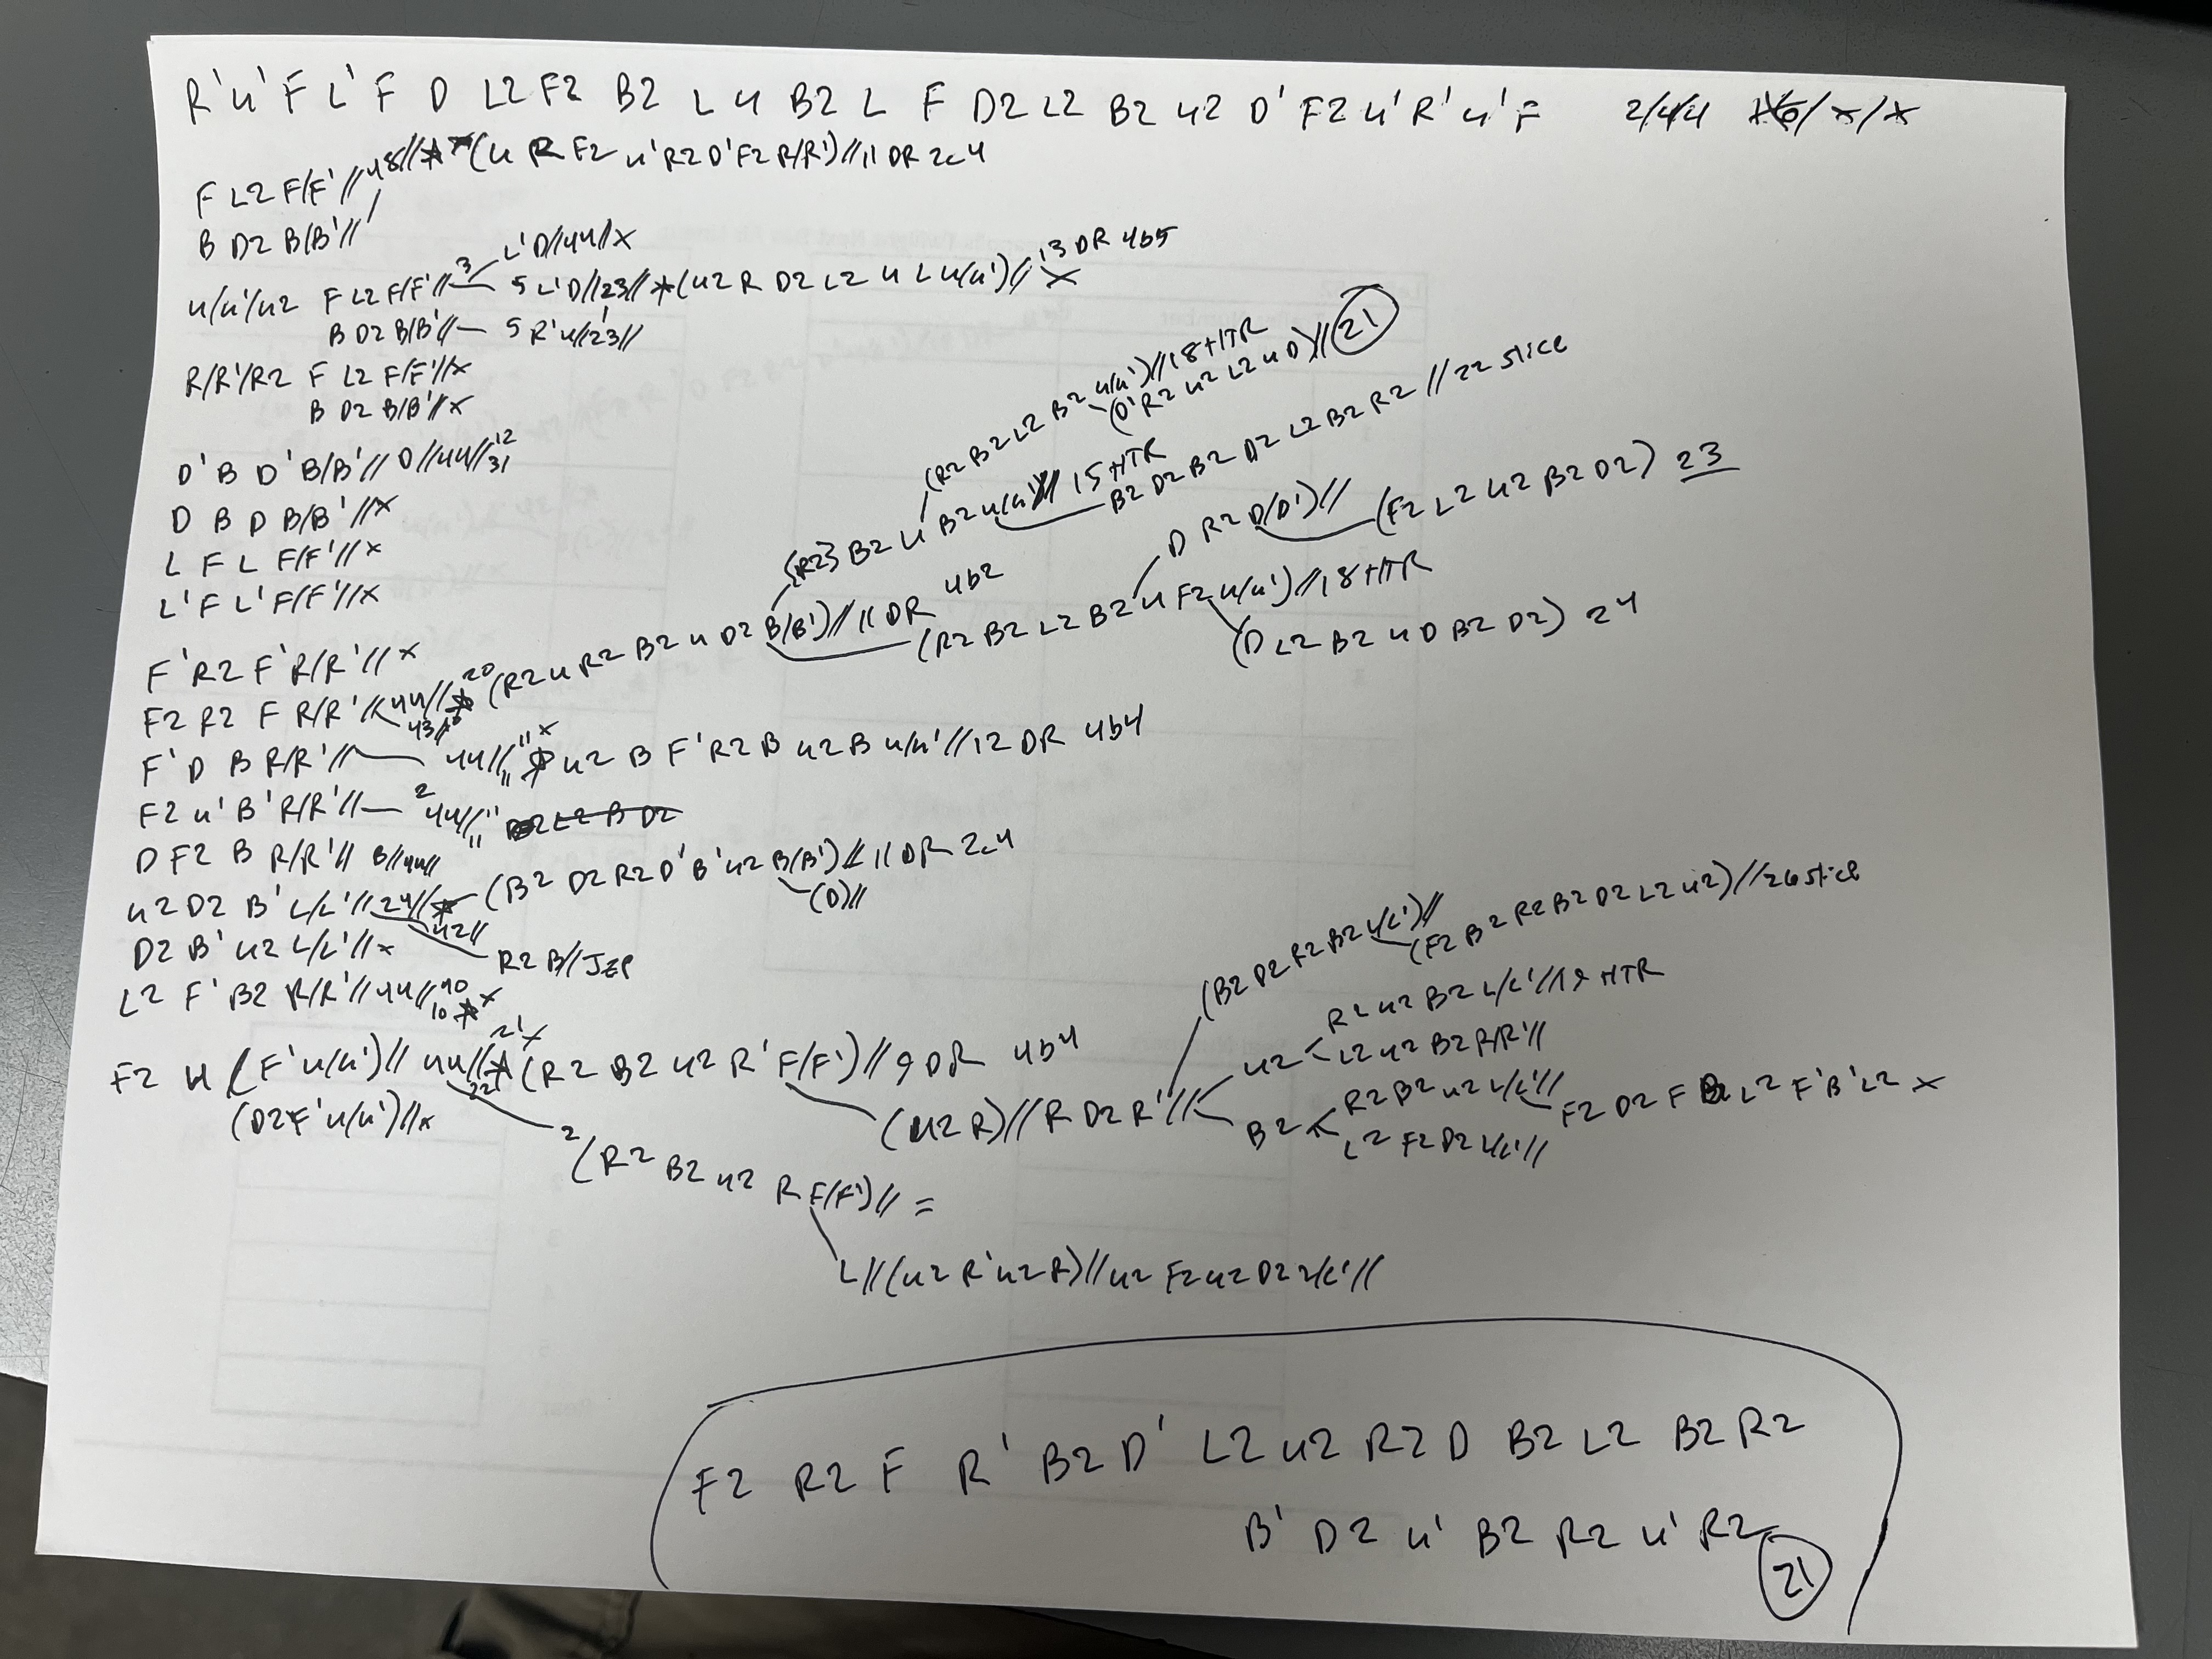 R'u'F L'F D L2 F2 B2 L u B2 L F D2 L2 B2 u2 D' F2 u'R'u'F 2/44 / x / x
F L2 F/F'// 48// (u R F2 u'R2 D'F2 R/R')//11 DR 2c4
B D2 B/B'//
u/u'/u2 F L2 F/F'// 3 L'D//44//x
5 L'D//23//*(u2 R D2 L2 u L u/u')// 13 DR 4b5 x
B D2 B/B'// 5 R'u//23//
R/R'/R2 F L2 F/F'//x
B D2 B/B'//x
(R2 B2 L2 B2 u/u')//18 HTR
(D'R2 u2 L2 u D)// 21
D'B D'B/B'// D//44// 12 31
D B D B/B'//x
L F L F/F'//x
L'F L'F/F'//x
(R2) B2 u B2 u/u'// 15 HTR
B2 D2 B2 D2 L2 B2 R2 //22 slice
D R2 D/D')// (F2 L2 u2 B2 D2) 23
F'R2 F'R/R'//x
F2 R2 F R/R'// 44//* 20 (R2 u R2 B2 u D2 B/B')//11 DR 4b2
43//
(R2 B2 L2 B2 u F2 u/u')//18 HTR
(D L2 B2 u D B2 D2) 24
F'D B R/R'// 44// 11 11 x u2 B F'R2 B u2 B u/u'//12 DR 4b4
F2 u'B'R/R'// 2 44// 11 11
D F2 B R/R'// B//44//
u2 D2 B'L/L'//24//* (B2 D2 R2 D'B'u2 B/B')//11 DR 2c4
(D)//
42//
R2 B//JZP
D2 B'u2 L/L'//x
L2 F'B2 R/R'//44// 40 10 * x
F2 u (F'u/u')// 44//* 21 x 22 (R2 B2 u2 R'F/F')//9 DR 4b4
(D2 F'u/u')//x
(u2 R)//R D2 R'//
(B2 D2 R2 B2 L/L')//
(F2 B2 R2 B2 D2 L2 u2)//26 slice
u2 R2 u2 B2 L/L'//19 HTR
L2 u2 B2 R/R'//
B2 R2 B2 u2 L/L'//
F2 D2 F B L2 F'B'L2 x
L2 F2 D2 L/L'//
2 (R2 B2 u2 R F/F')// =
L//(u2 R'u2 R)//u2 F2 u2 D2 L/L'//
F2 R2 F R' B2 D' L2 u2 R2 D B2 L2 B2 R2
B' D2 u' B2 R2 u' R2
21